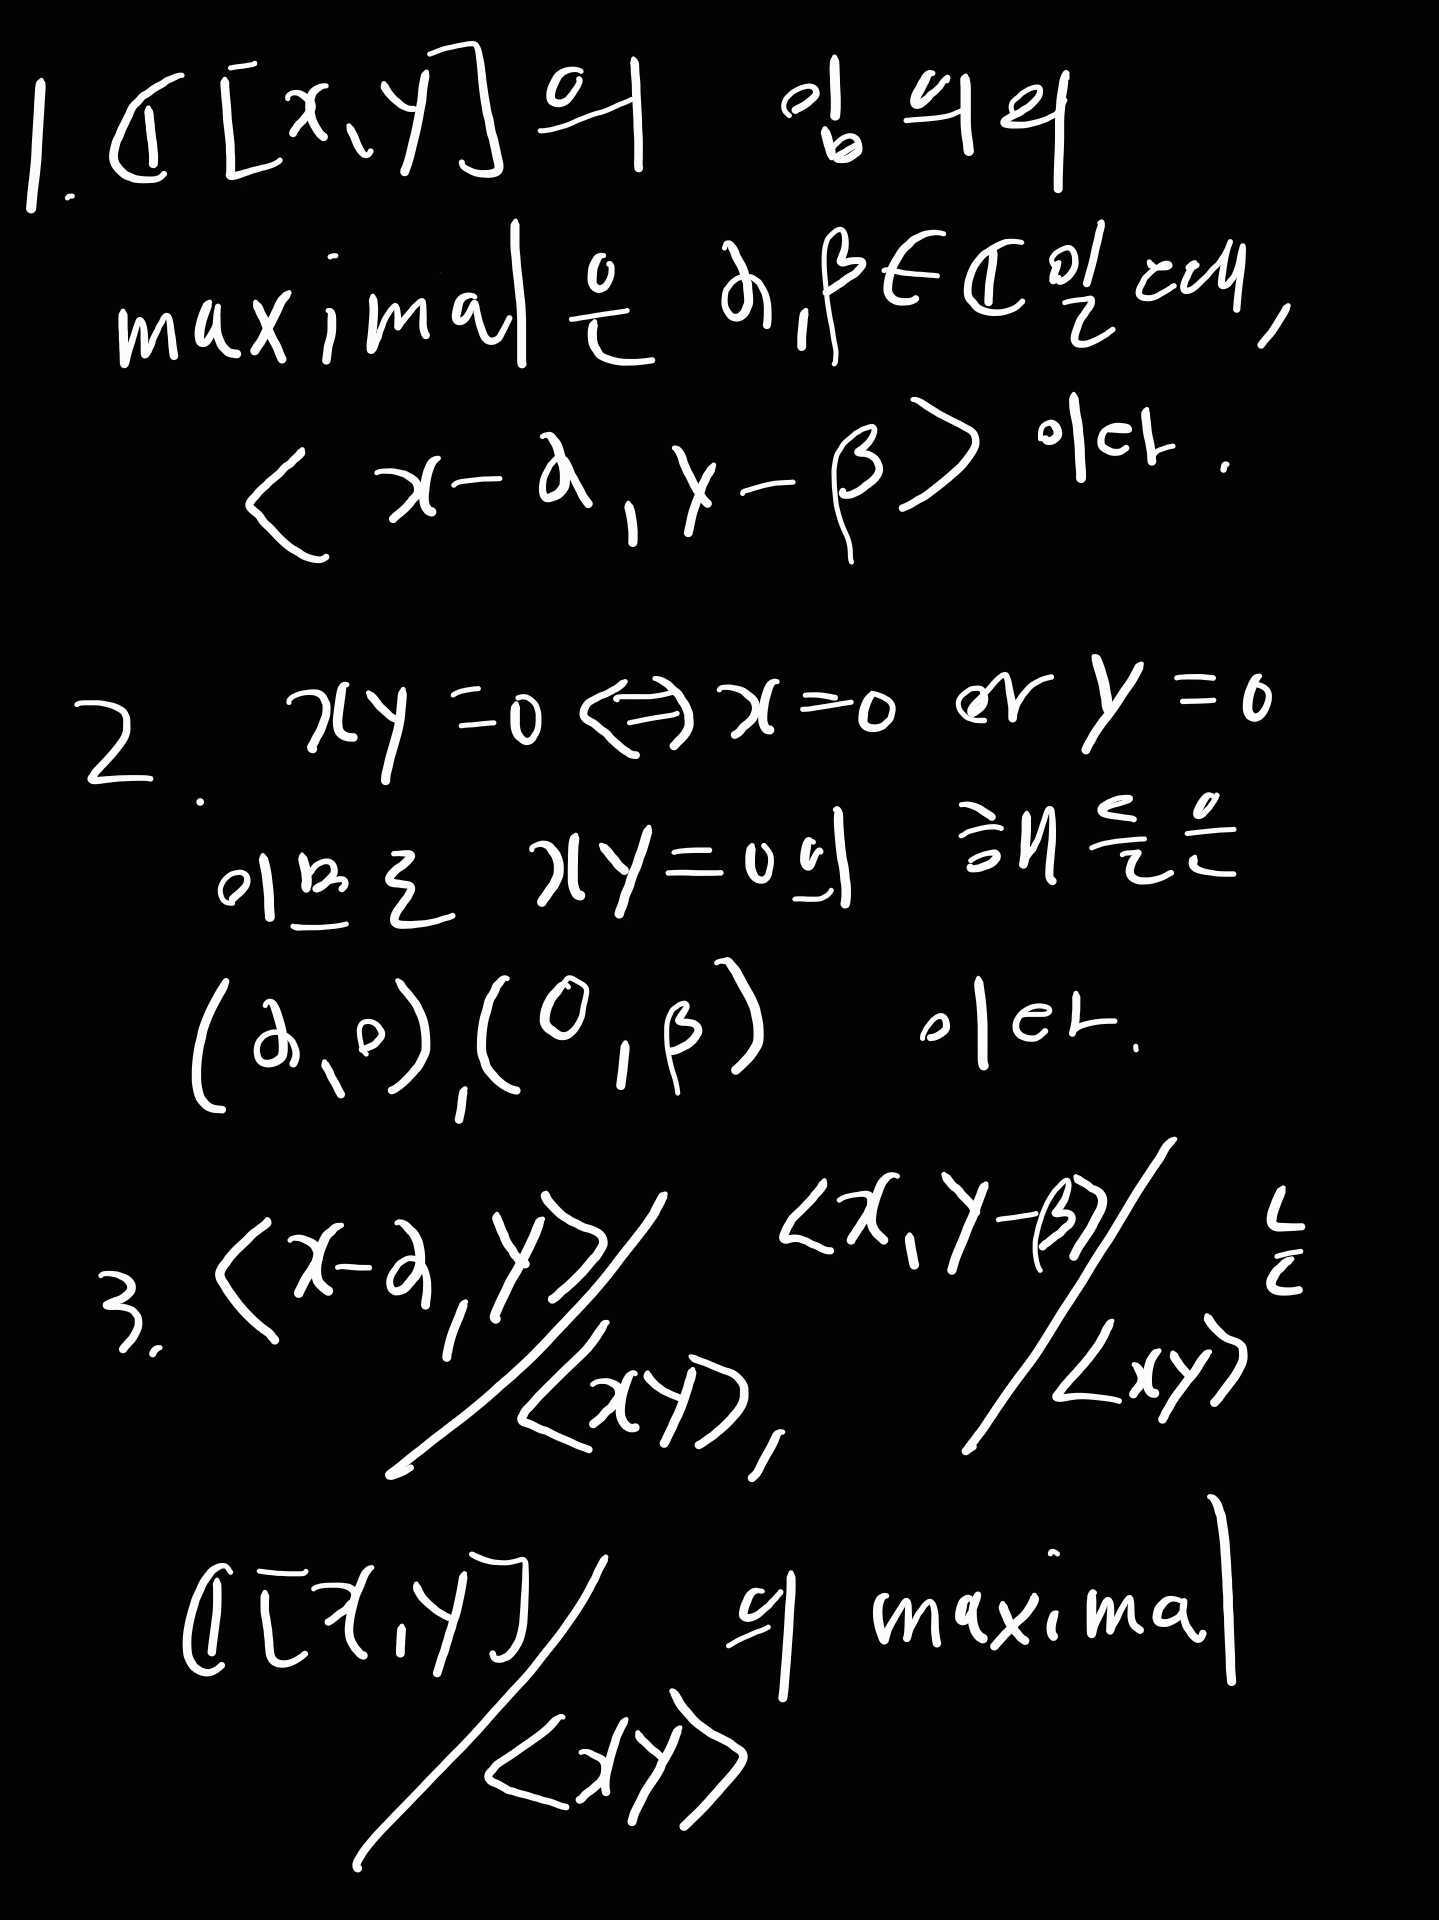 1. ℂ[x,y]의 임의의
maximal은 α,β∈ℂ일 때,
<x-α, y-β>이다.
2. xy=0 ⇔ x=0 or y=0
이므로 xy=0의 해들은
(α,0),(0,β) 이다.
3. <x-α,y>/<xy>, <x,y-β>/<xy> 는
ℂ[x,y]/<xy> 의 maximal